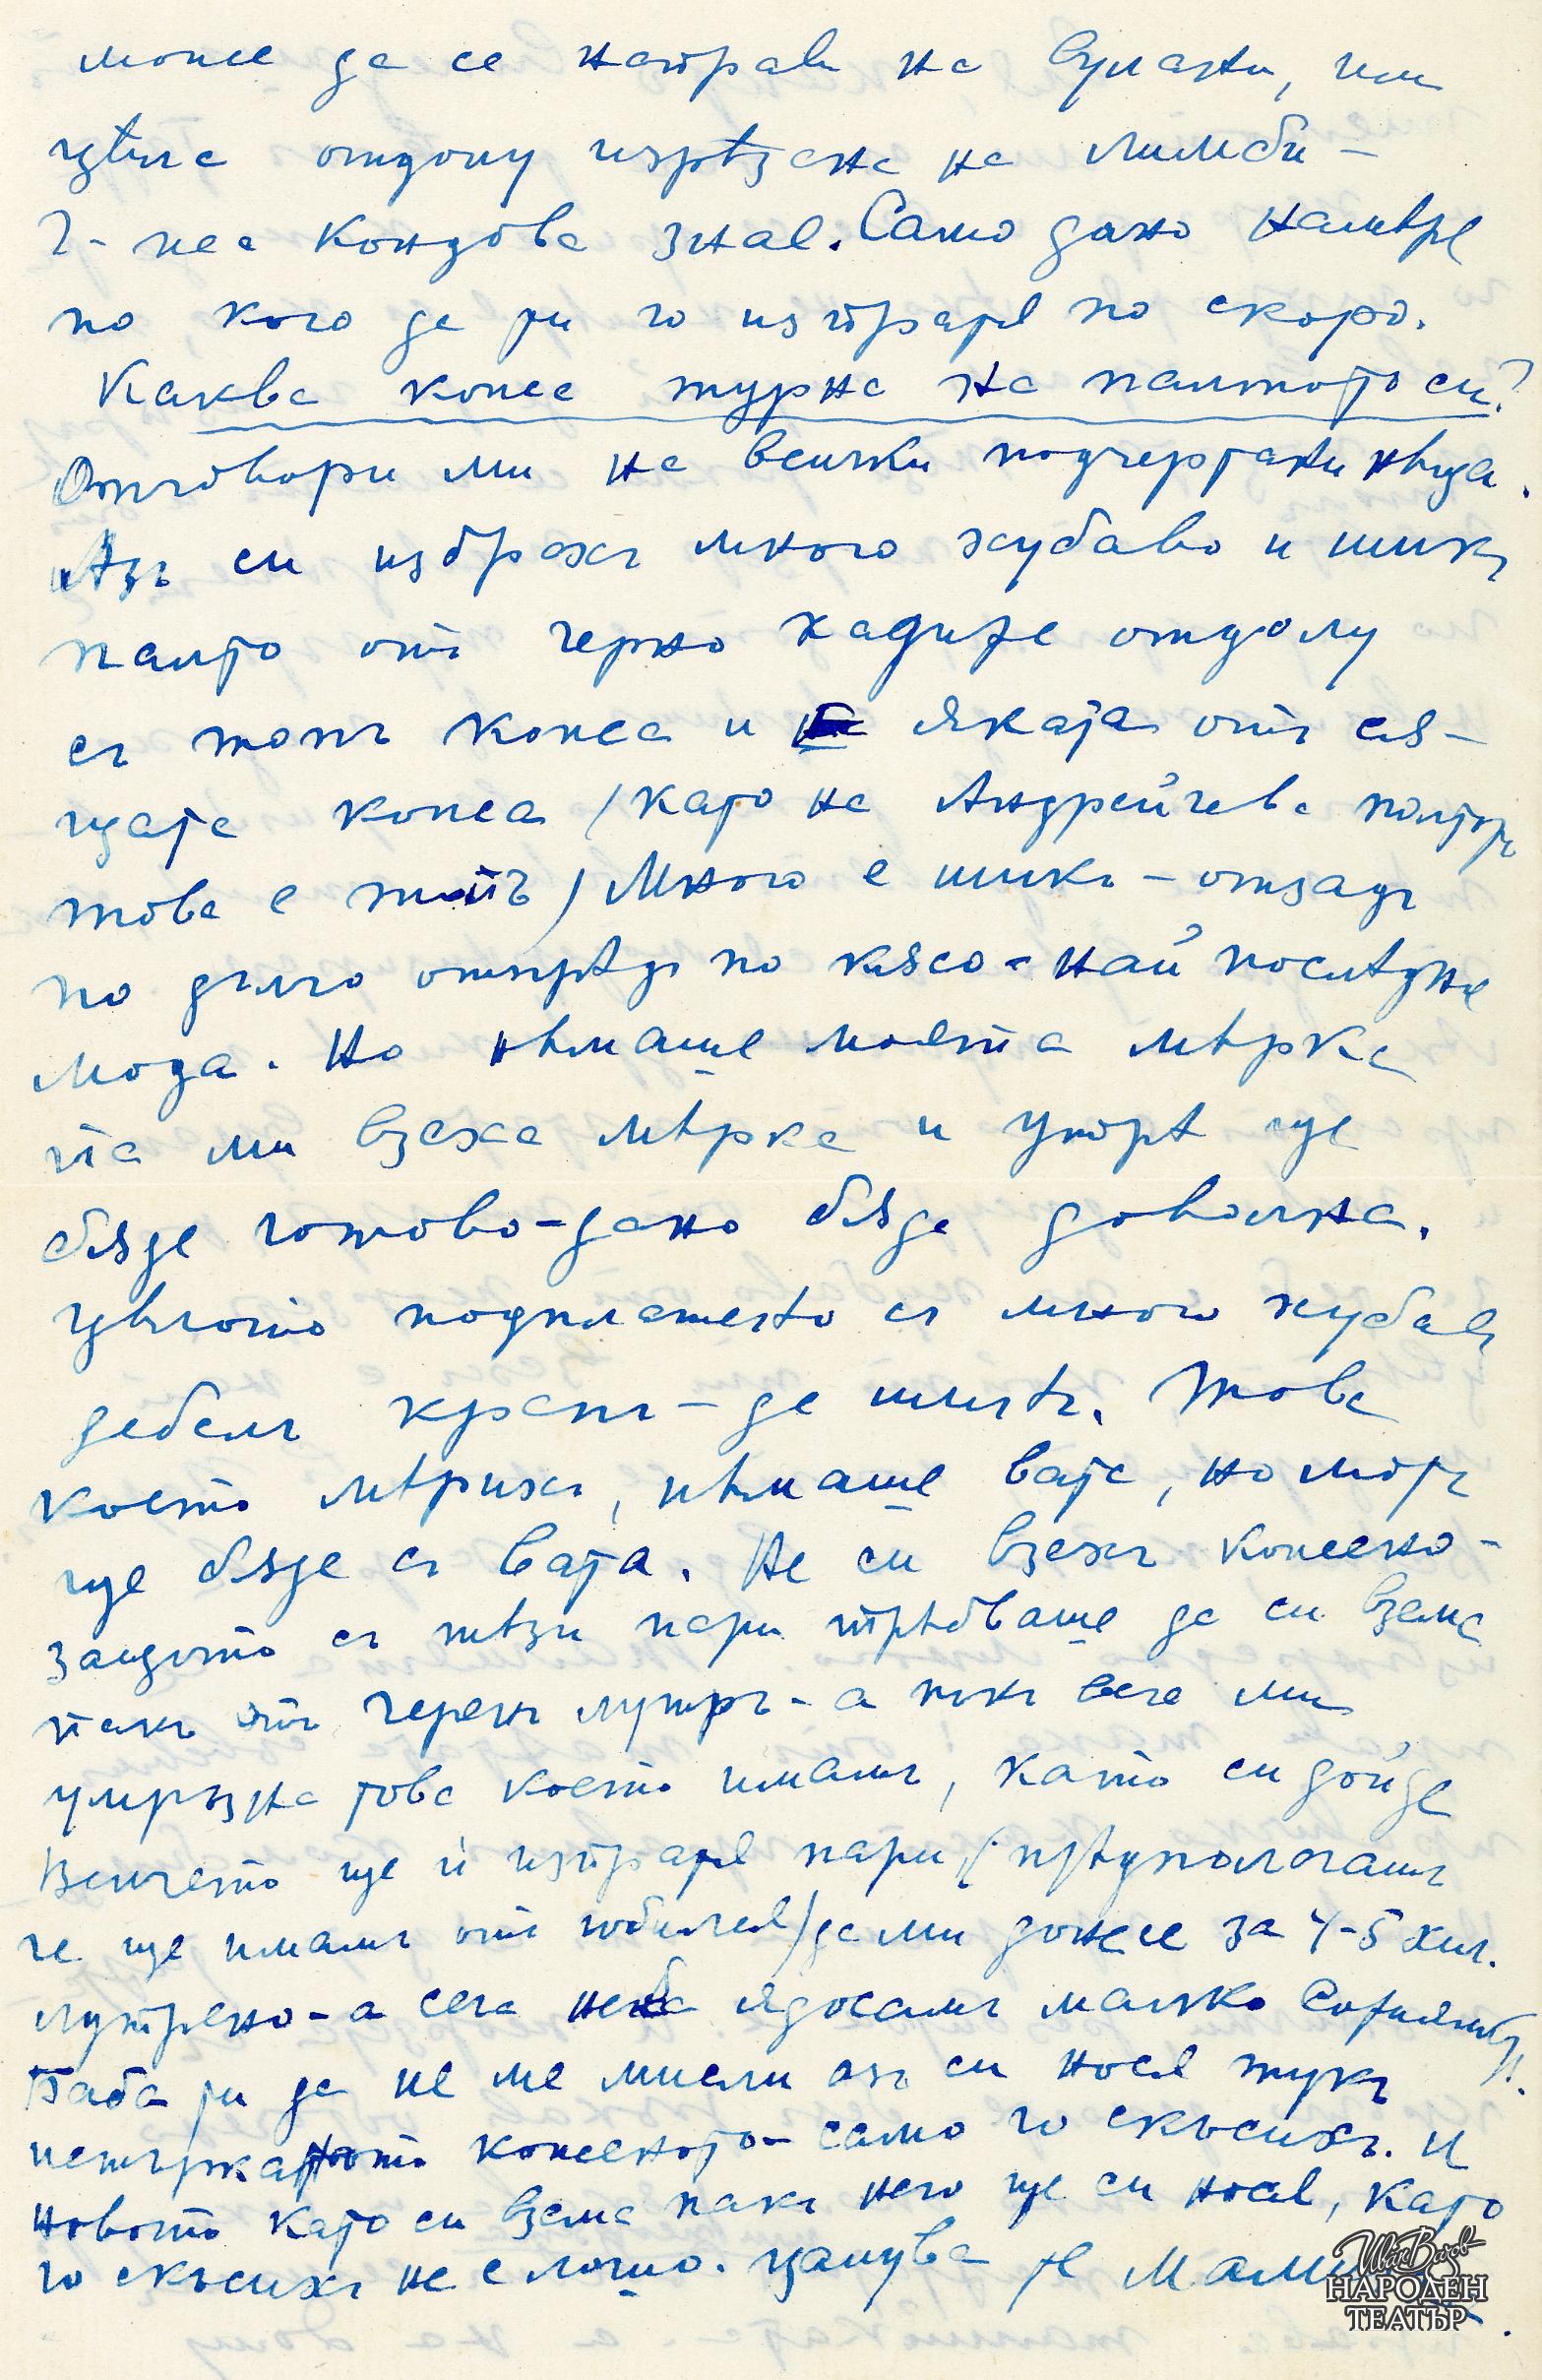 може да се направи на вулани, или
цѣла отдолу изрѣзана на лимби –
г-жа Кондова знае. Само дано намѣря
по кого да ти го изпратя по скоро.
Каква кожа турна на палтото си?
Отговори ми на всички подчертани нѣща.
Азъ си избрахъ много хубаво и шикъ
палто отъ черно кадифе отдолу
съ топъ кожа и яката отъ сѫ-
щата кожа /като на Андрейчева
това е типъ/ Много е шикъ – отзадъ
по дълго отпрѣдъ по кѫсо – най послѣдня
мода. Но нѣмаше моята мѣрка
та ми взеха мѣрка и утрѣ ще
бѫде готово – дано бѫда доволна.
Цѣлото подплатено съ много хубавъ
дебелъ крепъ – де шинъ. Това
което мѣрихъ, нѣмаше вата, но моятъ
ще бѫде съ вата. Не си взехъ кожено –
защото съ тѣзи пари трѣбваше да си взема
пакъ отъ черенъ лутръ – а пъкъ вече ми
умръзна това което имамъ, като си дойде
Венчето ще ѝ изпратя пари /прѣдполагамъ
че ще имамъ отъ юбилея/ да ми донесе за 4-5 хил.
лутрено – а сега нека ядосамъ малко Софиянци.
Баба ти да не ме мисли азъ си нося тукъ
коженото – само го скъсихъ. И
новото като си взема пакъ него ще си нося, като
го скъсихъ не е лошо. Цалува те Мама
Иван Вазов
НАРОДЕН
ТЕАТЪР